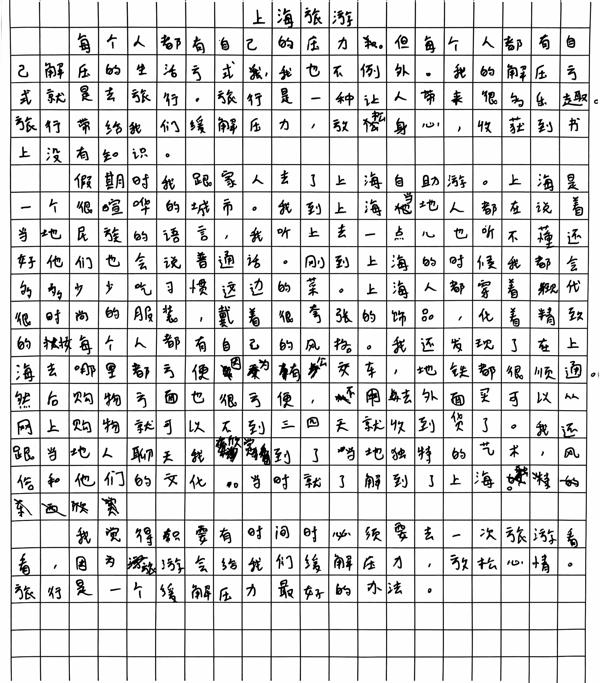 上海旅游
每个人都有自己的压力。但每个人都有自
己解压的生活亏式我，我也不例外。我的解压亏
式就是去旅行。旅行是一种让人带来很多乐趣。
旅行带给我们缓解压力，放松身心，收获到书
上没有知识。
假期时我跟家人去了上海自助游。上海是
一个很喧哗的城市。我到上海当地人都在说着
当地民族的语言，我听上去一点儿也听不懂还
好他们也会说普通话。刚到上海的时候我都会
多多少少吃习惯这边的菜。上海人都穿着现代
很时尚的服装，戴着很夸张的饰品，化着精致
的妆每个人都有自己的风格。我还发现了在上
海去哪里都亏便因为有公交车，地铁都很顺通。
然后购物亏面也很亏便，不用去外面买可以从
网上购物就可以不到三四天就收到货了。我还
跟当地人聊天我欣赏到了当地独特的艺术，风
俗和他们的文化。当时就了解到了上海独特的
东西欣赏
我觉得只要有时间时必须要去一次旅游看
看，因为旅游会给我们缓解压力，放松心情。
旅行是一个缓解压力最好的办法。